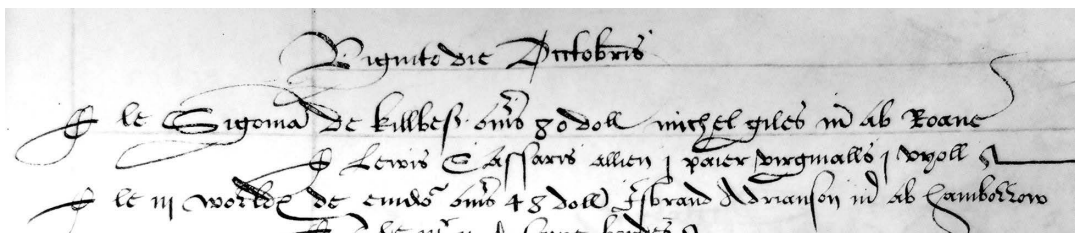 Viginto die Octobris
le Sigoma de killbes onus 80 doll michel giles m ab Roane
Lewis Cassaris allien j paier virginalls j vyoll
le iij worldes de emdo onus 48 doll Isbrand Adrianson m ab hamborrow